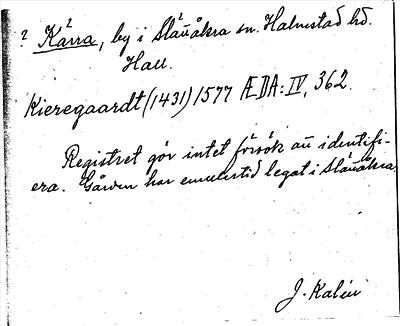 ? Kärra, by i Slättåkra sn. Halmstad hd.
Hall.
Kieregaardt (1431) 1577 ÆDA: IV, 362.
Registret gör intet försök att identifi-
era. Gården har emellertid legat i Slättåkra.
J. Kalén